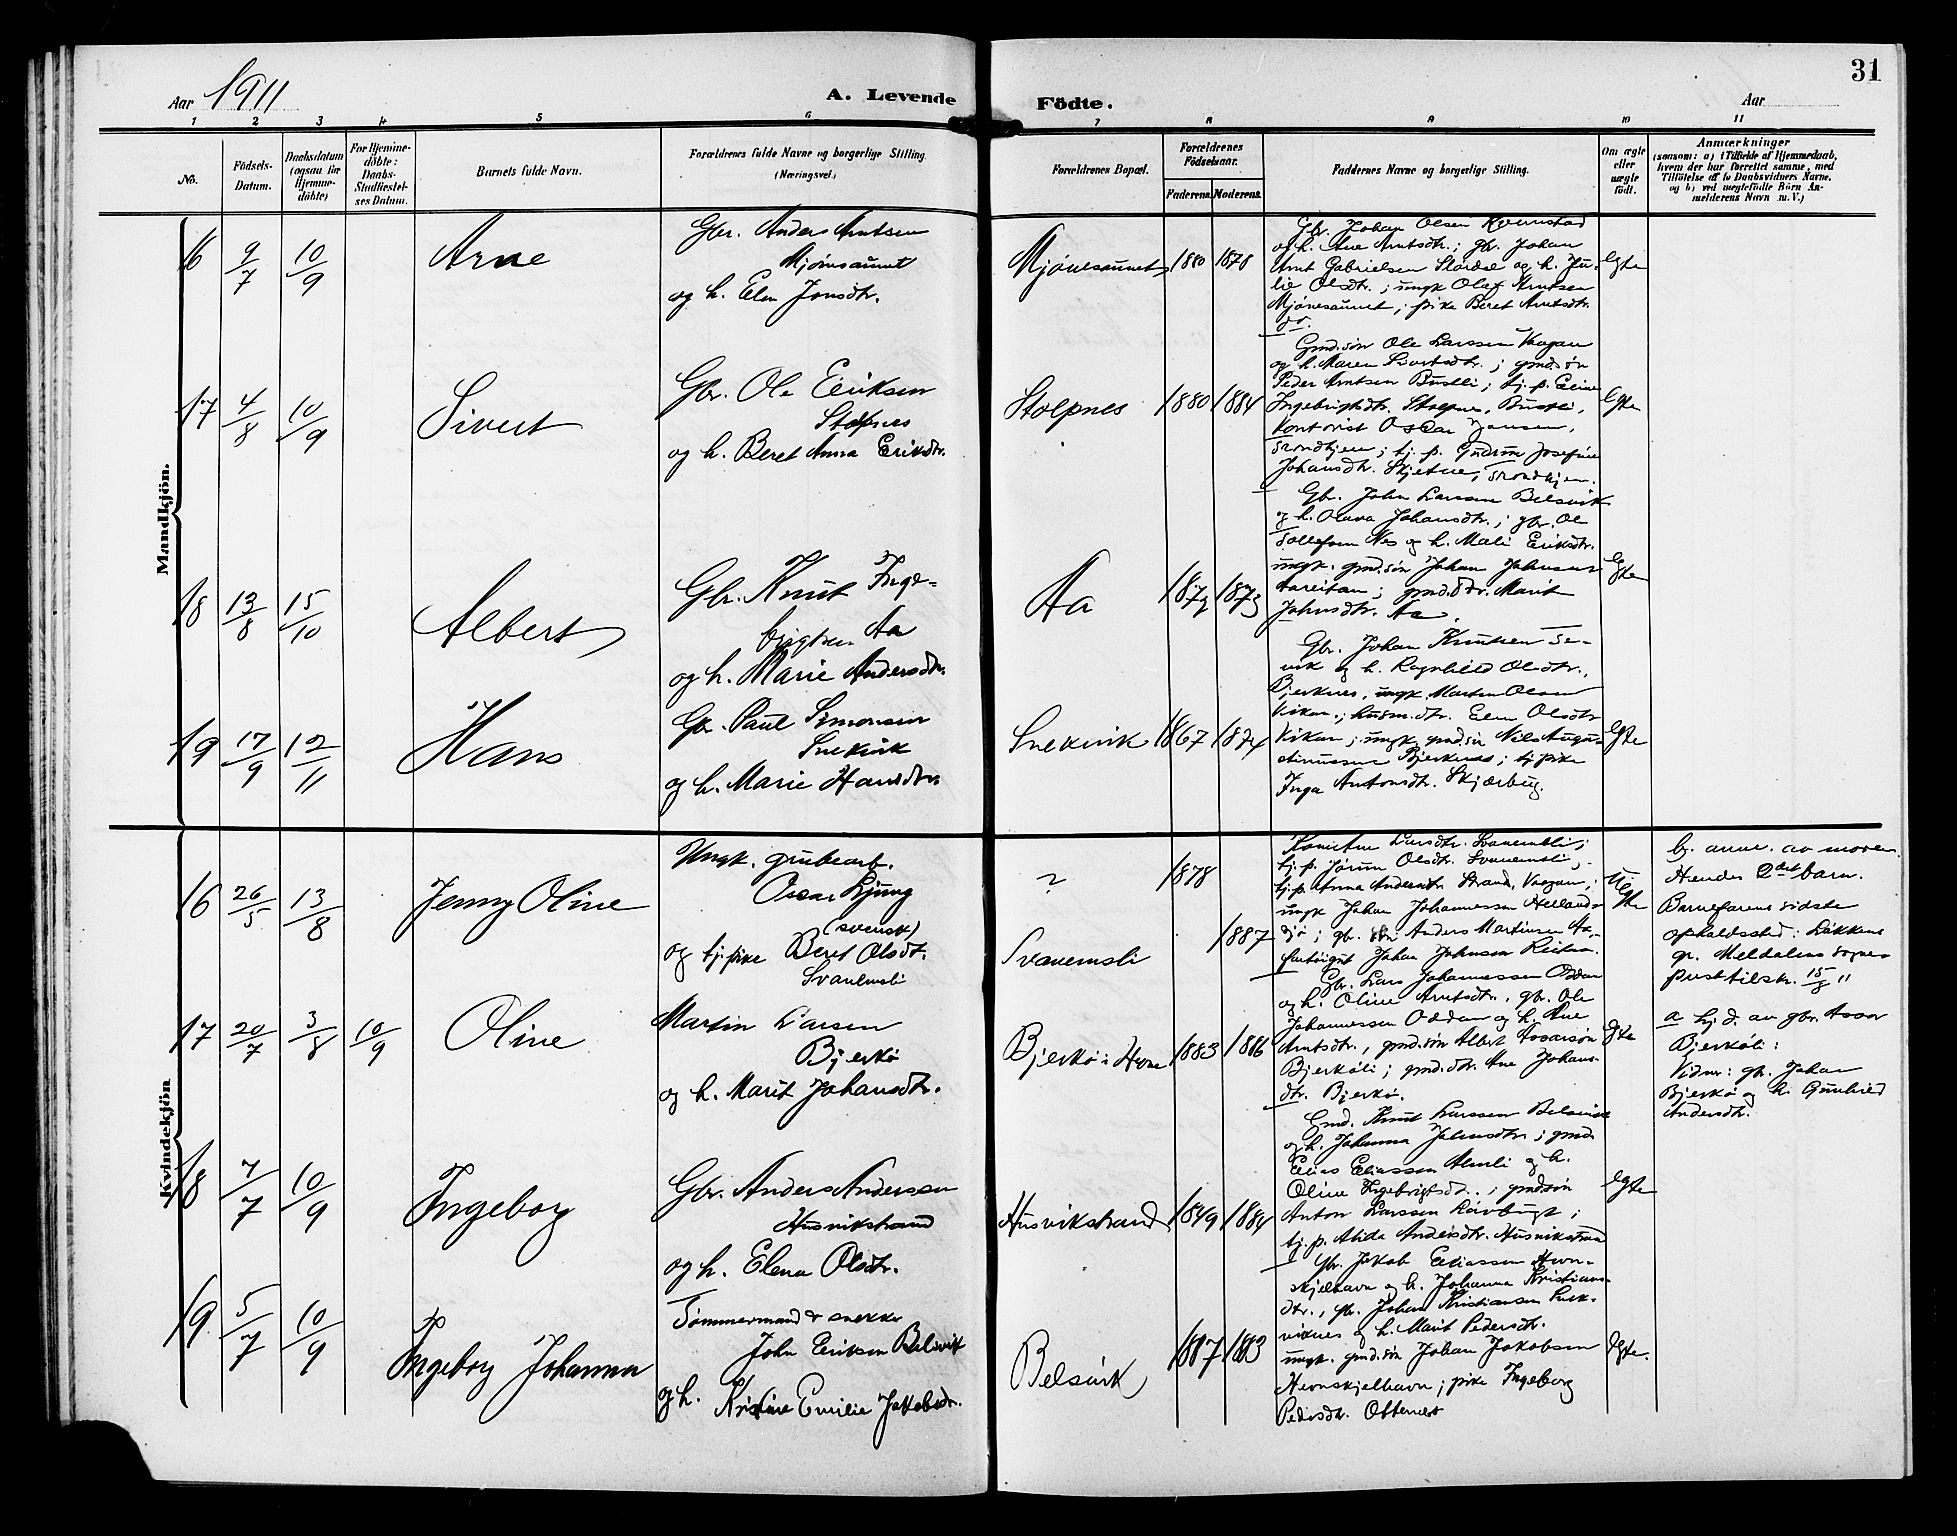 31
Aar 1911
A. Levende Födte.
Aar
1 2 3 4 5 6 7 8 9 10 11
No.
Födsels-Datum.
Daabsdatum (ogsaa for Hjemme-döbte)
For Hjemme-döbte: Daabs-Stadfæstel-ses Datum.
Barnets fulde Navn.
Forældrenes fulde Navne og borgerlige Stilling.
(Næringsvei.)
Forældrenes Bopæl.
Forældrenes Födselsaar.
Faderens. Moderens.
Faddernes Navne og borgerlige Stilling.
Om ægte eller uægte födt.
Anmærkninger
(saasom: a) i Tilfælde af Hjemmedaab,
hvem der har forrettet samme, med
Tilföielse af to Daabsvidners Navne,
og b) ved uegtefödte Börn An-
melderens Navn m. V.)
Mandkjön.
16 9/7 10/9 Arne
Gbr. Anders Arntsen
Mjönesaunet
og h. Elen Jonsdtr.
Mjönesaunet 1880 1878
Gbr. Johan Olsen
og h. Ane Arntsdtr.; gbr. Johan
Arnt Gabrielsen Stördal og h. Ju-
lie Olsdtr.; ungk. Olaf Arntsen
Mjönesaunet; pike Beret Arntsdtr.
do.
Egte
17 4/8 10/9 Sivert
Gbr. Ole Eriksen
Stolpnes
og h. Beret Anna Eriksdtr.
Stolpnes 1880 1884
Gmd.sön Ole Larssen Vaagan
og h. Maren Sivertsdtr.; gmd.sön
Peder Arntsen Bustli; tj. p. Eline
Ingebrigtsdtr. Stolpnes, Bustli,
Kontorist Oscar Jensen,
Trondhjem; tj. p. Gudrun Josefine
Johansdtr. Skjetne, Trondhjem.
Egte
18 13/8 15/10 Albert
Gbr. Knut Inge-
brigtsen Aa
og h. Marie Andersdtr.
Aa 1872 1873
Gbr. John Larssen Belsvik
og h. Olava Johansdtr.; gbr. Ole
Tollefsen Nes og h. Mali Eriksdtr.
ungk. gmd.sön Johan Johnsen
Aareitan; gmd.dtr. Marit
Johnsdtr. Aa.
Egte
19 17/9 12/11 Hans
Gbr. Paul Simonsen
Snekvik
og h. Marie Hansdtr.
Snekvik 1867 1874
Gbr. Johan Knutsen Se-
vik og h. Ragnhild Olsdtr.,
Bjerknes, ungk. Martin Olsen
Vikan; husm.dtr. Elen Olsdtr
Vikan; ungk. gmd.sön Nils Augu-
stinussen Bjerknes; tj. pike
Inga Antonsdtr. Skjærbug.
Egte
Kvindekjön
16 26/5 13/8 Jenny Oline
Ungk. grubearb.
Oscar Ljung
(svensk)
og tj. pike Beret Olsdt.
Svanemsli
? 1878
Svanemsli 1887
Larsdtr. Svanemsli;
tj. p. Jörun Olsdtr. Svanemsli;
tj. p. Anna Andersdtr Strand, Vaagan;
ungk Johan Johannessen Hellands-
sjö; gbr. sön Anders Martinsen Aa,
Johan Johnsen
Uegte
b. anm. av moren.
Hendes 2det barn.
Barnefarens sidste
opholdssted: Lökkens
gr. Meldalens sogne-
prest tilskr. 15/8 11
17 20/7 3/8 10/9 Oline
Martin Larsen
Bjerkö
og h. Marit Johansdtr.
Bjerkö i Hevne 1883 1886
Gbr. Lars Johannessen Oddan
og h. Oline Arntsdtr., gbr. Ole
Johannessen Oddan og h. Ane
Arntsdtr., gmd.sön Albert Assarsön
Bjerköli; gmd.dtr. Ane Johans-
dtr. Bjerkö.
Egte
a hj.d. av gbr. Assar
Bjerköli:
Vidner: gbr. Johan
Bjerkö og h. Gunhild
Andersdtr.
18 7/7 10/9 Ingeborg
Gbr. Anders Andersen
Husvikstrand
og h. Elena Olsdtr.
Husvikstrand 1849 1884
Gmd. Knut Larssen Belsvik
og h. Johanna Johnsdtr; gmd.
Elias Eliassen Almli og h.
Oline Ingebrigtsdtr.; gmdsön
Anton Larssen Rövbugt;
tj. p. Alida Andersdtr. Husvikstrand
Egte
19 5/7 10/9 Ingeborg Johanna
Tömmermand & snekker
John Eriksen Belsvik
og h. Kristine Emilie Jakobsdtr.
Belsvik 1887 1883
Gbr. Jakob Eliassen Hevn-
skjelhavn og h. Johanna Kristians-
dtr., gbr. Johan Kristiansen
og h. Marit Pedersdtr.
ungk. gmd.sön Johan Jakobsen
Hevnskjelhavn; pike Ingeborg
Pedersdtr.
Egte.